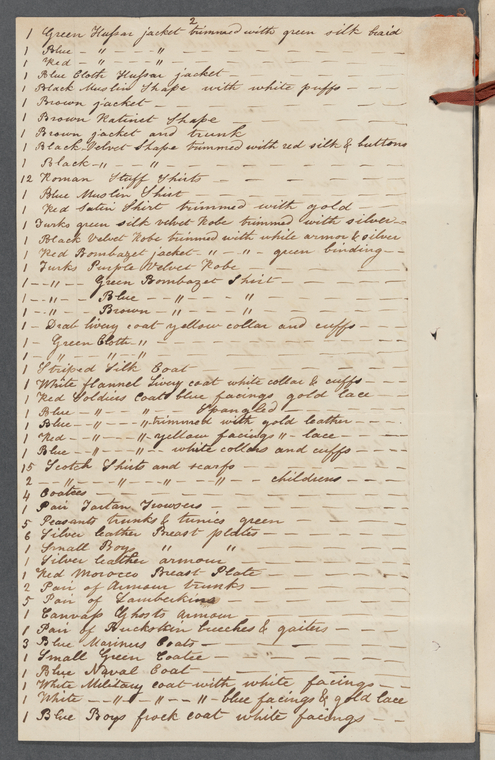 2
1 Green Hussar jacket trimmed with green silk braid
1 Blue - " - - " - - - - -
1 Red - " - " - - - - -
1 Blue Cloth Hussar jacket - - - -
1 Black Muslin Shape with white puffs - - -
1 Brown jacket - - - - - -
1 Brown Ratinet Shape - - - -
1 Brown jacket and trunk - - - -
1 Black Velvet Shape trimmed with red silk & buttons
1 Black - " - " - - - - -
12 Roman Stuff Shirts - - - -
1 Blue Muslin Shirt - - - -
1 Red Satin Shirt trimmed with gold - -
1 Turks green silk velvet Robe trimmed with silver -
1 Black Velvet Robe trimmed with white armor & silver
1 Red Bombazet jacket - " - " - green binding - -
1 Turks Purple Velvet Robe - - - -
1 - " - Green Bombazet Shirt - - -
1 - " - Blue - " - " - - -
1 - " - Brown - " - " - - -
1 - Drab livery coat yellow collar and cuffs - - -
1 - Green Cloth " - - - -
1 - " " " - - - -
1 Striped Silk Coat - - - -
1 White flannel Livery coat white collar & cuffs - - -
1 Red Soldiers Coat blue facings gold lace - -
1 Blue - " - " Spangled - - -
1 Blue - " - " - trimmed with gold leather - -
1 Red - " - " - yellow facings " - lace - -
1 Blue - " - " - white collars and cuffs - -
15 Scotch Shirts and scarfs - - - -
2 - " - " - " - " - childrens - - -
4 Coatees - - - - - -
1 Pair Tartan Trowsers - - - -
5 Peasants trunks & tunics green - - -
6 Silver leather Breast plates - - -
1 Small Boys " " - - - -
1 Silver leather armour - - - -
1 Red Morocco Breast Plate - - - -
2 Pair of Armour trunks - - - -
5 Pair of Lamberkins - - - -
1 Canvass Ghosts armour - - - -
1 Pair of Buckskin breeches & gaiters - - -
3 Blue Mariners Coats - - - -
1 Small Green Coatee - - - -
1 Blue Naval Coat - - - -
1 White Military coat with white facings - - -
1 White - " - " - " - blue facings & gold lace
1 Blue Boys frock coat white facings - - -